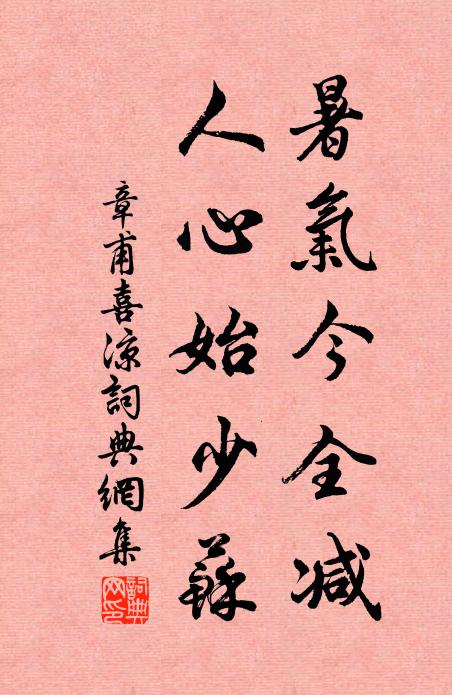 暑氣今全減
人心始少蘇
章甫喜涼詞典網集
詞典
網印